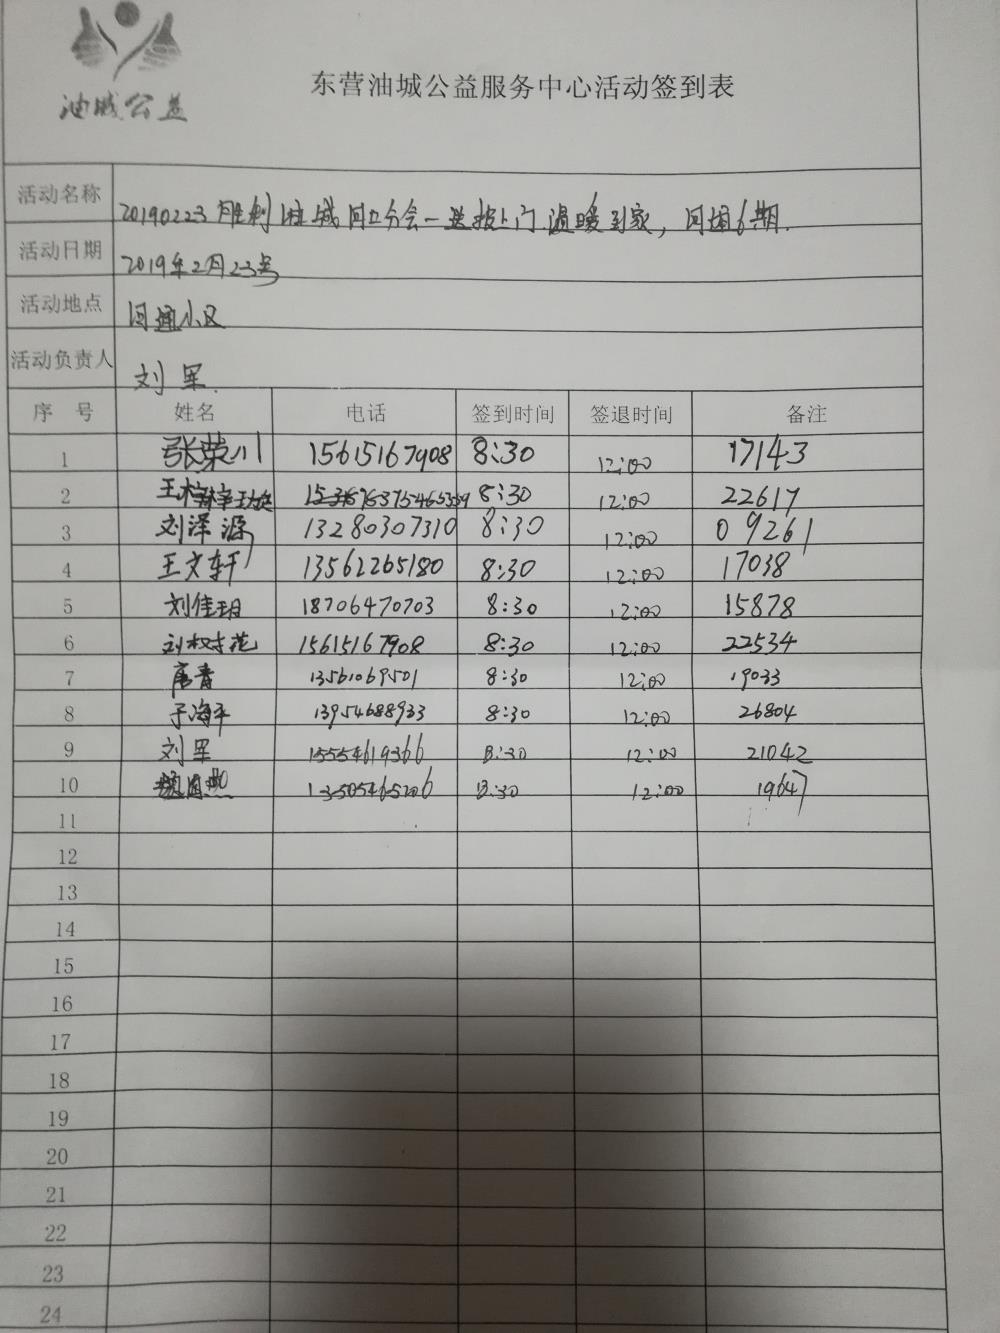 油城公益
东营油城公益服务中心活动签到表
活动名称 20190223胜利油城河口分会—送报上门.温暖到家，河通6期.
活动日期 2019年2月23号
活动地点 河通小区
活动负责人 刘军.
序 号 姓名 电话 签到时间 签退时间 备注
1 张荣川 15615167908 8:30 12:00 17143
2 8:30 12:00 22617
3 刘泽源 13280307310 8:30 12:00 09261
4 王文轩 13562265180 8:30 12:00 17038
5 刘佳玥 18706470703 8:30 12:00 15878
6 15615167908 8:30 12:00 22534
7 唐青 13561069501 8:30 12:00 19033
8 于海平 13954688933 8:30 12:00 26804
9 刘军 15554619366 8:30 12:00 21042
10 8:30 12:00 19647
11
12
13
14
15
16
17
18
19
20
21
22
23
24